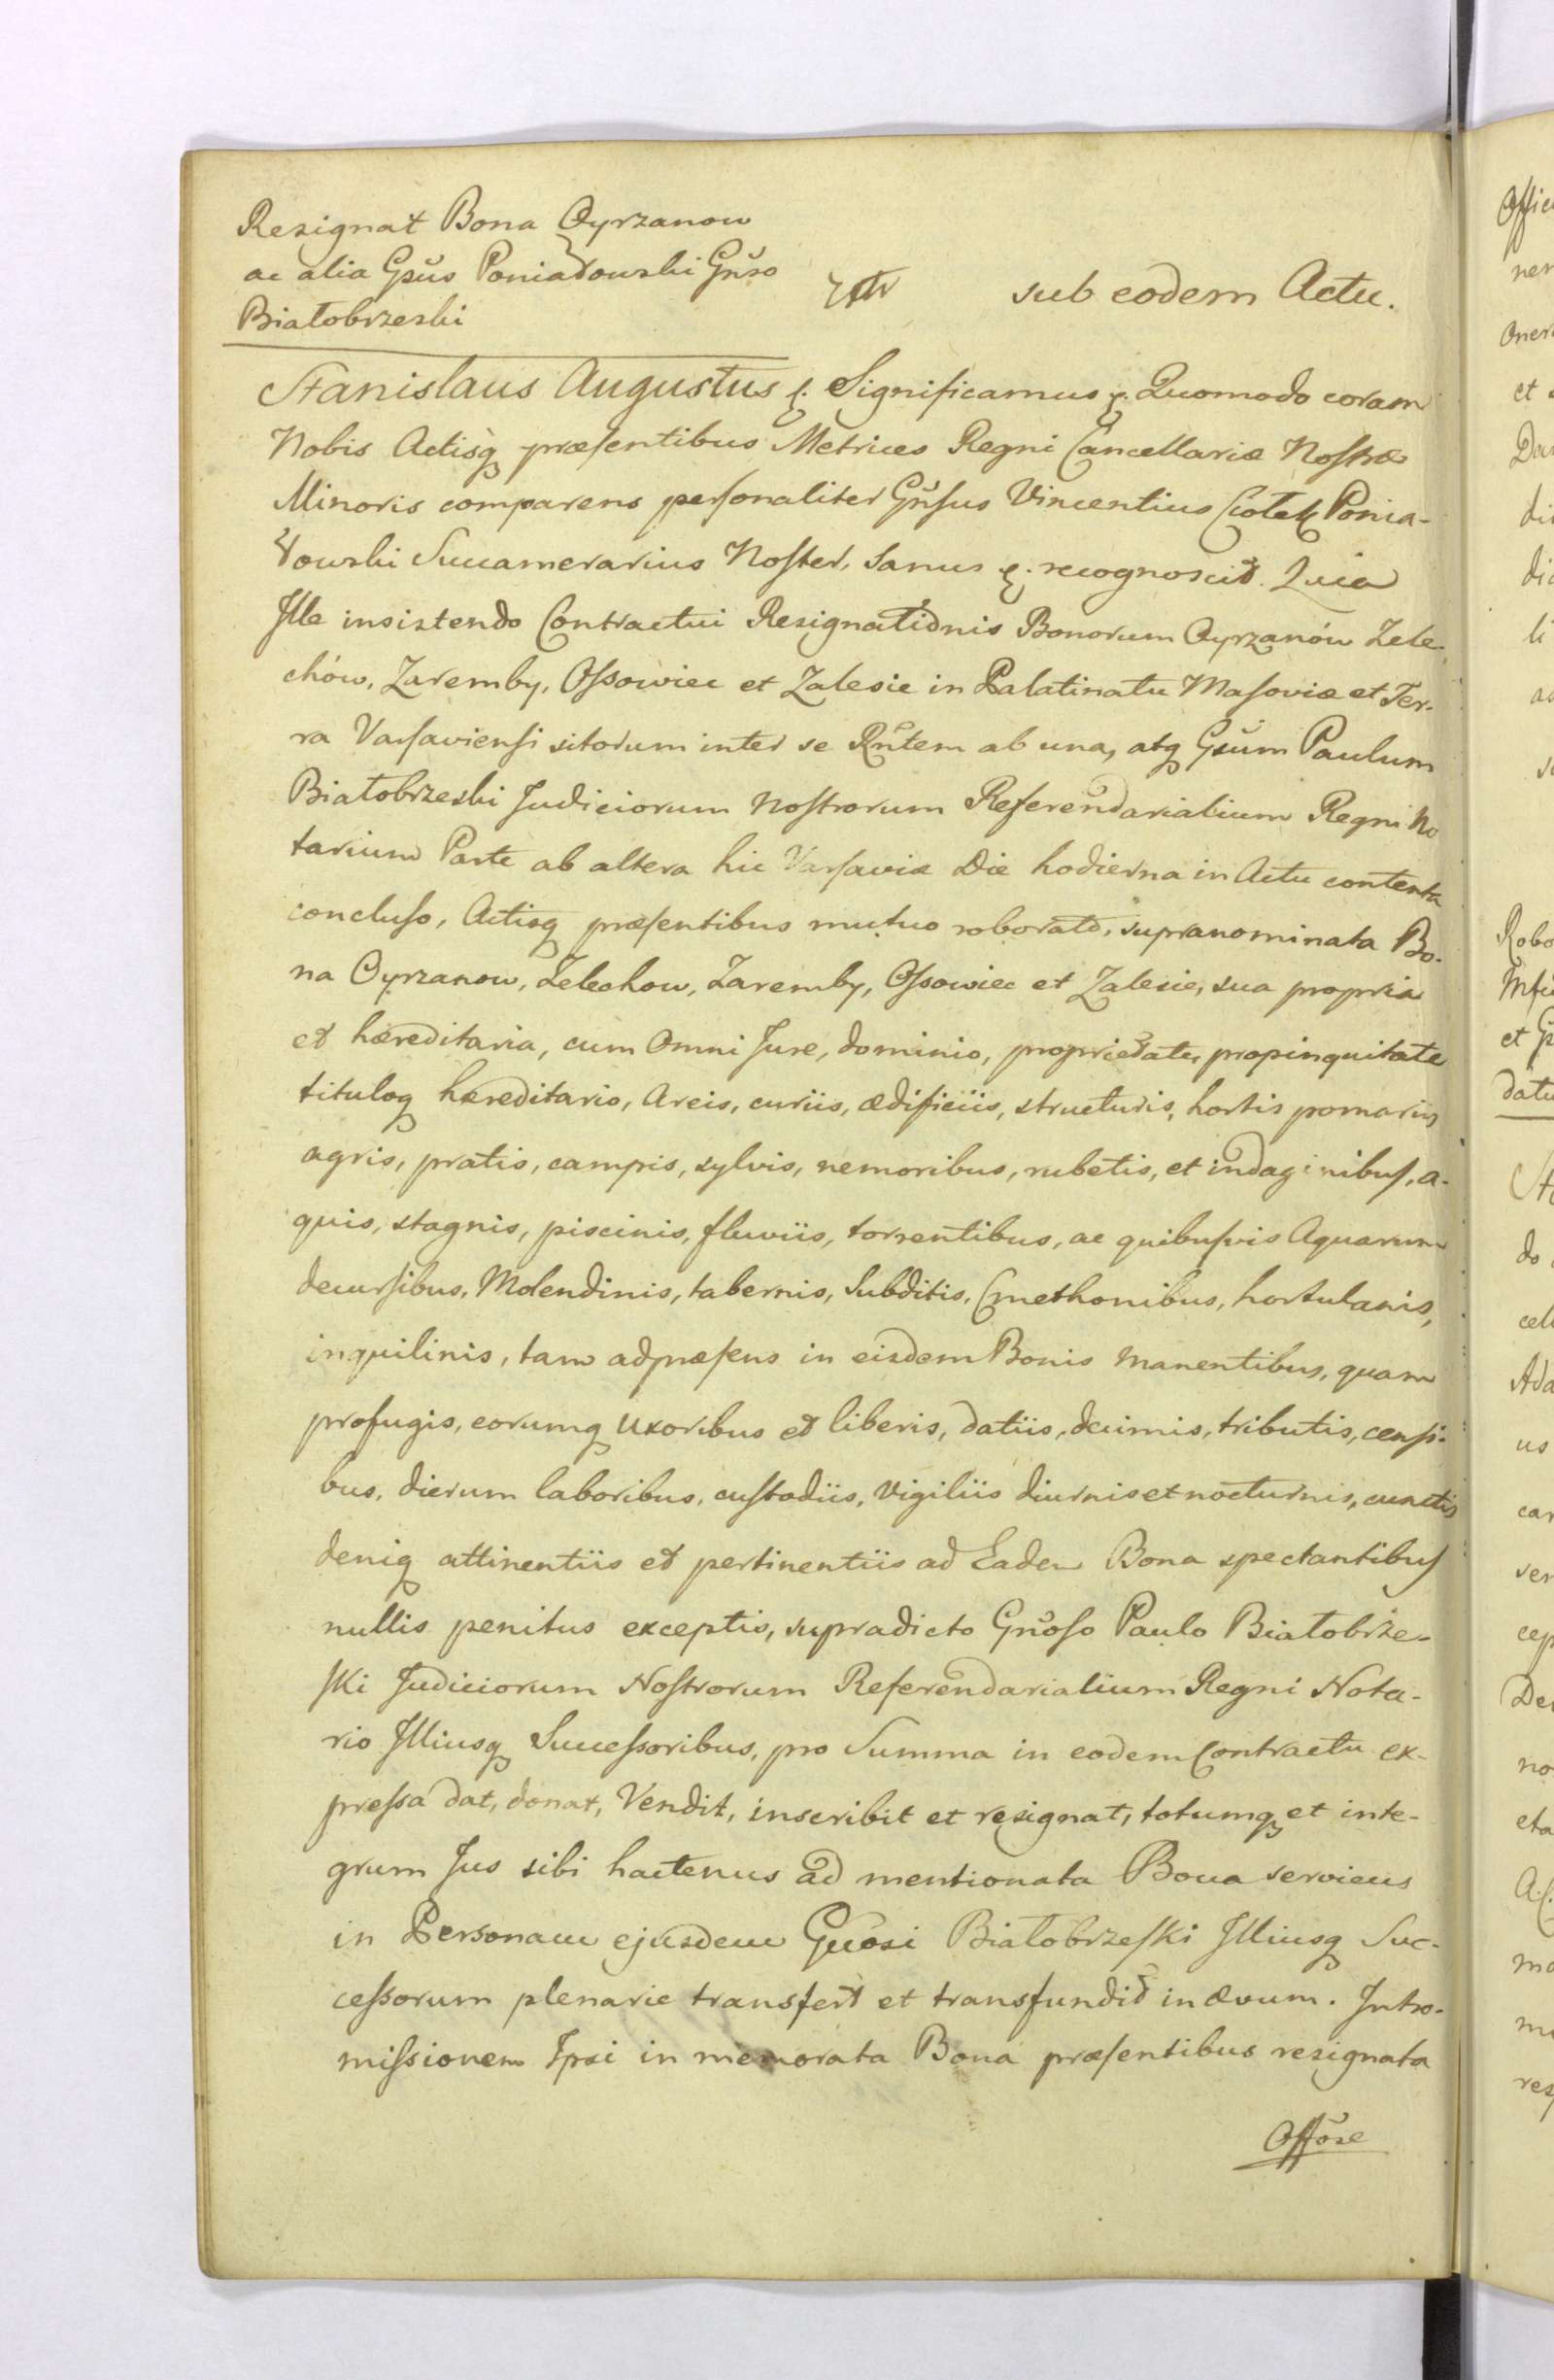 Resignat Bona Oyrzanow
ac alia Gsŭs Poniatowski Gnŭso
Białobrzeski
sub eodem Actu.
Stanislaus Augustus &. Significamus &. Quomodo coram
Nobis Actisq præsentibus Metrices Regni Cancellariæ Nostræ
Minoris comparens personaliter Gnŭsus Vincentius Ciołek Ponia-
towski Succamerarius Noster, Sanus &. recognoscit. Quia
Ille insistendo Contractui Resignationis Bonorum Oyrzanów Zele-
chów, Zaremby, Ossowiec et Zalesie in Palatinatu Masoviæ et Ter-
ra Varsaviensi sitorum inter se Rñtem ab una, atq Gsŭm Paulum
Białobrzeski Judiciorum Nostrorum Referendarialium Regni No
tarium Parte ab altera hic Varsaviæ Die hodierna in Actu contenta
concluso, Actisq præsentibus mutuo roborato, supranominata Bo-
na Oyrzanow, Zelechow, Zaremby, Ossowiec et Zalesie, sua propria
et hæreditaria, cum Omni Jure, dominio, proprietate, propinquitate
tituloq hæreditario, Areis, curiis, ædificiis, structuris, hortis pomariis
agris, pratis, campis, sylvis, nemoribus, rubetis, et indaginibus, a-
quis, stagnis, piscinis, fluviis, torrentibus, ac quibusvis Aquarum
decursibus, Molendinis, tabernis, Subditis, Cmethonibus, hortulanis,
inquilinis, tam adpræsens in eisdem Bonis manentibus, quam
profugis, eorumq Uxoribus et liberis, datiis, decimis, tributis, censi-
bus, dierum laboribus, custodiis, Vigiliis diurnis et nocturnis, cunctis
deniq attinentiis et pertinentiis ad Eadem Bona spectantibus
nullis penitus exceptis, supradicto Gnŏso Paulo Białobrze-
ski Judiciorum Nostrorum Referendarialium Regni Nota-
rio Illiusq Successoribus, pro Summa in eodem Contractu ex-
pressa dat, donat, Vendit, inscribit et resignat, totumq et inte-
grum Jus sibi hactenus ad mentionata Bona serviens
in Personam ejusdem Gnŏsi Białobrzeski Illiusq Suc-
cessorum plenarie transfert et transfundit in ævum. Intro-
missionem Ipsi in memorata Bona præsentibus resignata
Offŏse